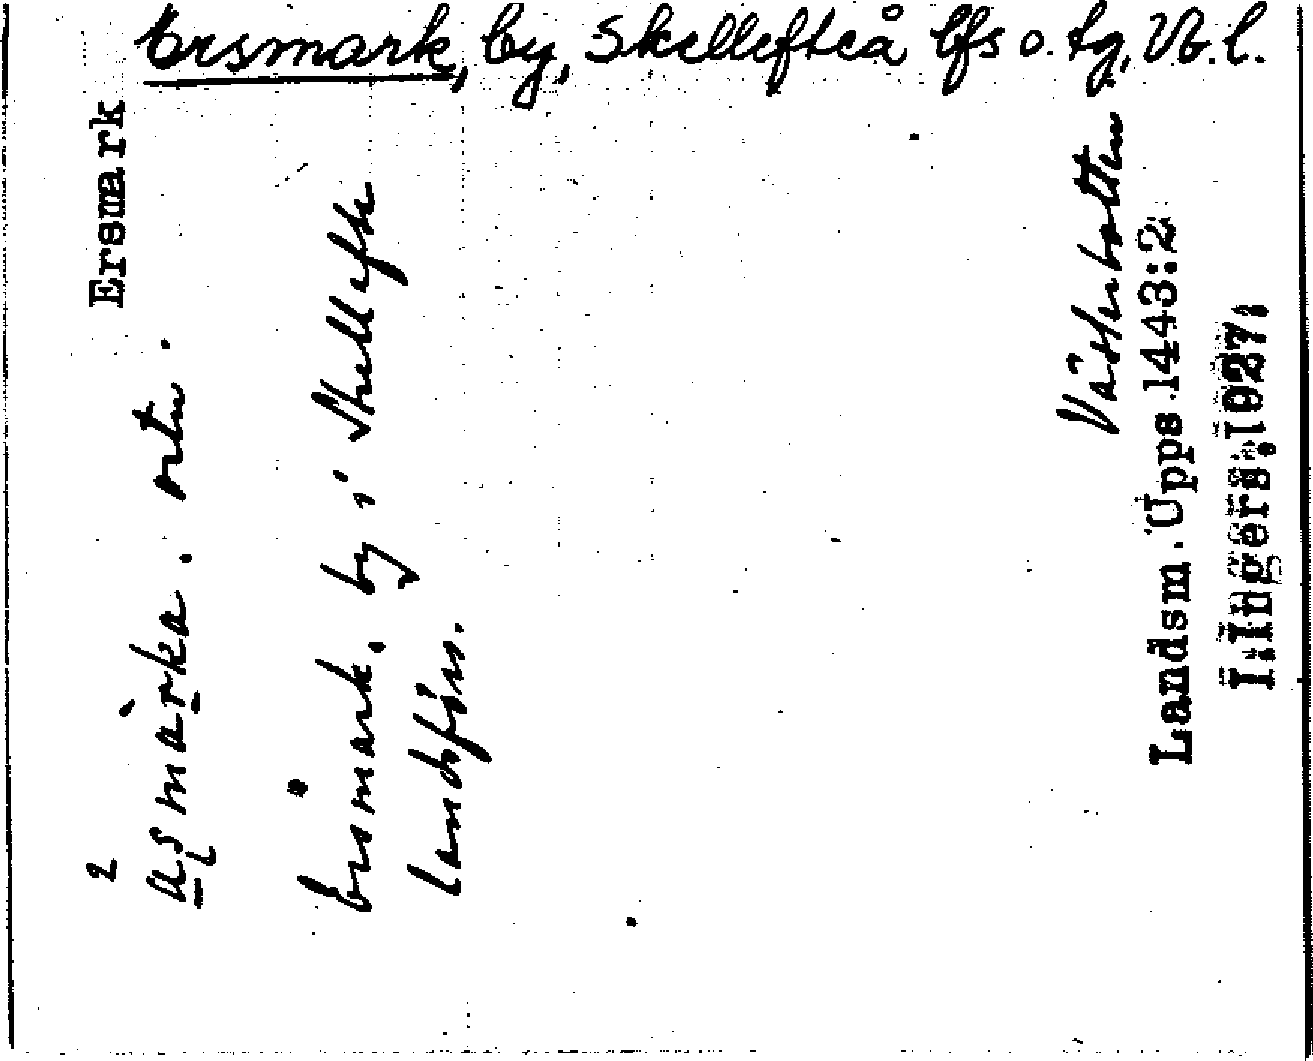 Ersmark, by, Skellefteå lfs o. tg, Vb. l.
Ersmark
ortn.
Ersmark, by i Skellefte
landsförs.
Västerbotten
Landsm. Upps. 1443:2
I. Ingers. 1927: